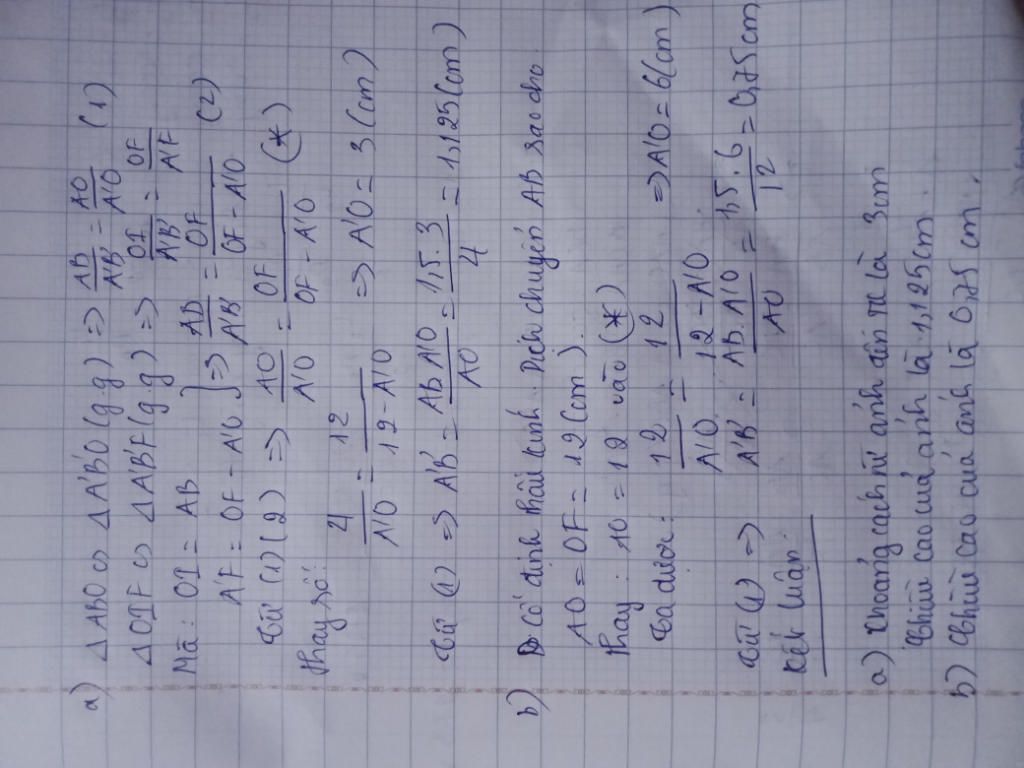 a) ΔABO ∽ ΔA'B'O (g.g) => AB/A'B' = AO/A'O (1)
ΔOIF ∽ ΔA'B'F (g.g) => OI/A'B' = OF/A'F
Mà: OI = AB
A'F = OF - A'O } => AB/A'B' = OF/(OF - A'O) (2)
Từ (1)(2) => AO/A'O = OF/(OF - A'O) (*)
Thay số:
4/A'O = 12/(12 - A'O) => A'O = 3 (cm)
Từ (1) => A'B' = AB.A'O/AO = 1,5.3/4 = 1,125 (cm)
b) Cố định thấu kính. Dịch chuyển AB sao cho
AO = OF = 12 (cm).
Thay: AO = 12 vào (*)
Ta được: 12/A'O = 12/(12 - A'O) => A'O = 6 (cm)
Từ (1) => A'B' = AB.A'O/AO = 1,5.6/12 = 0,75 cm
Kết luận:
a) Khoảng cách từ ảnh đến TK là 3 cm
Chiều cao của ảnh là 1,125 cm.
b) Chiều cao của ảnh là 0,75 cm.